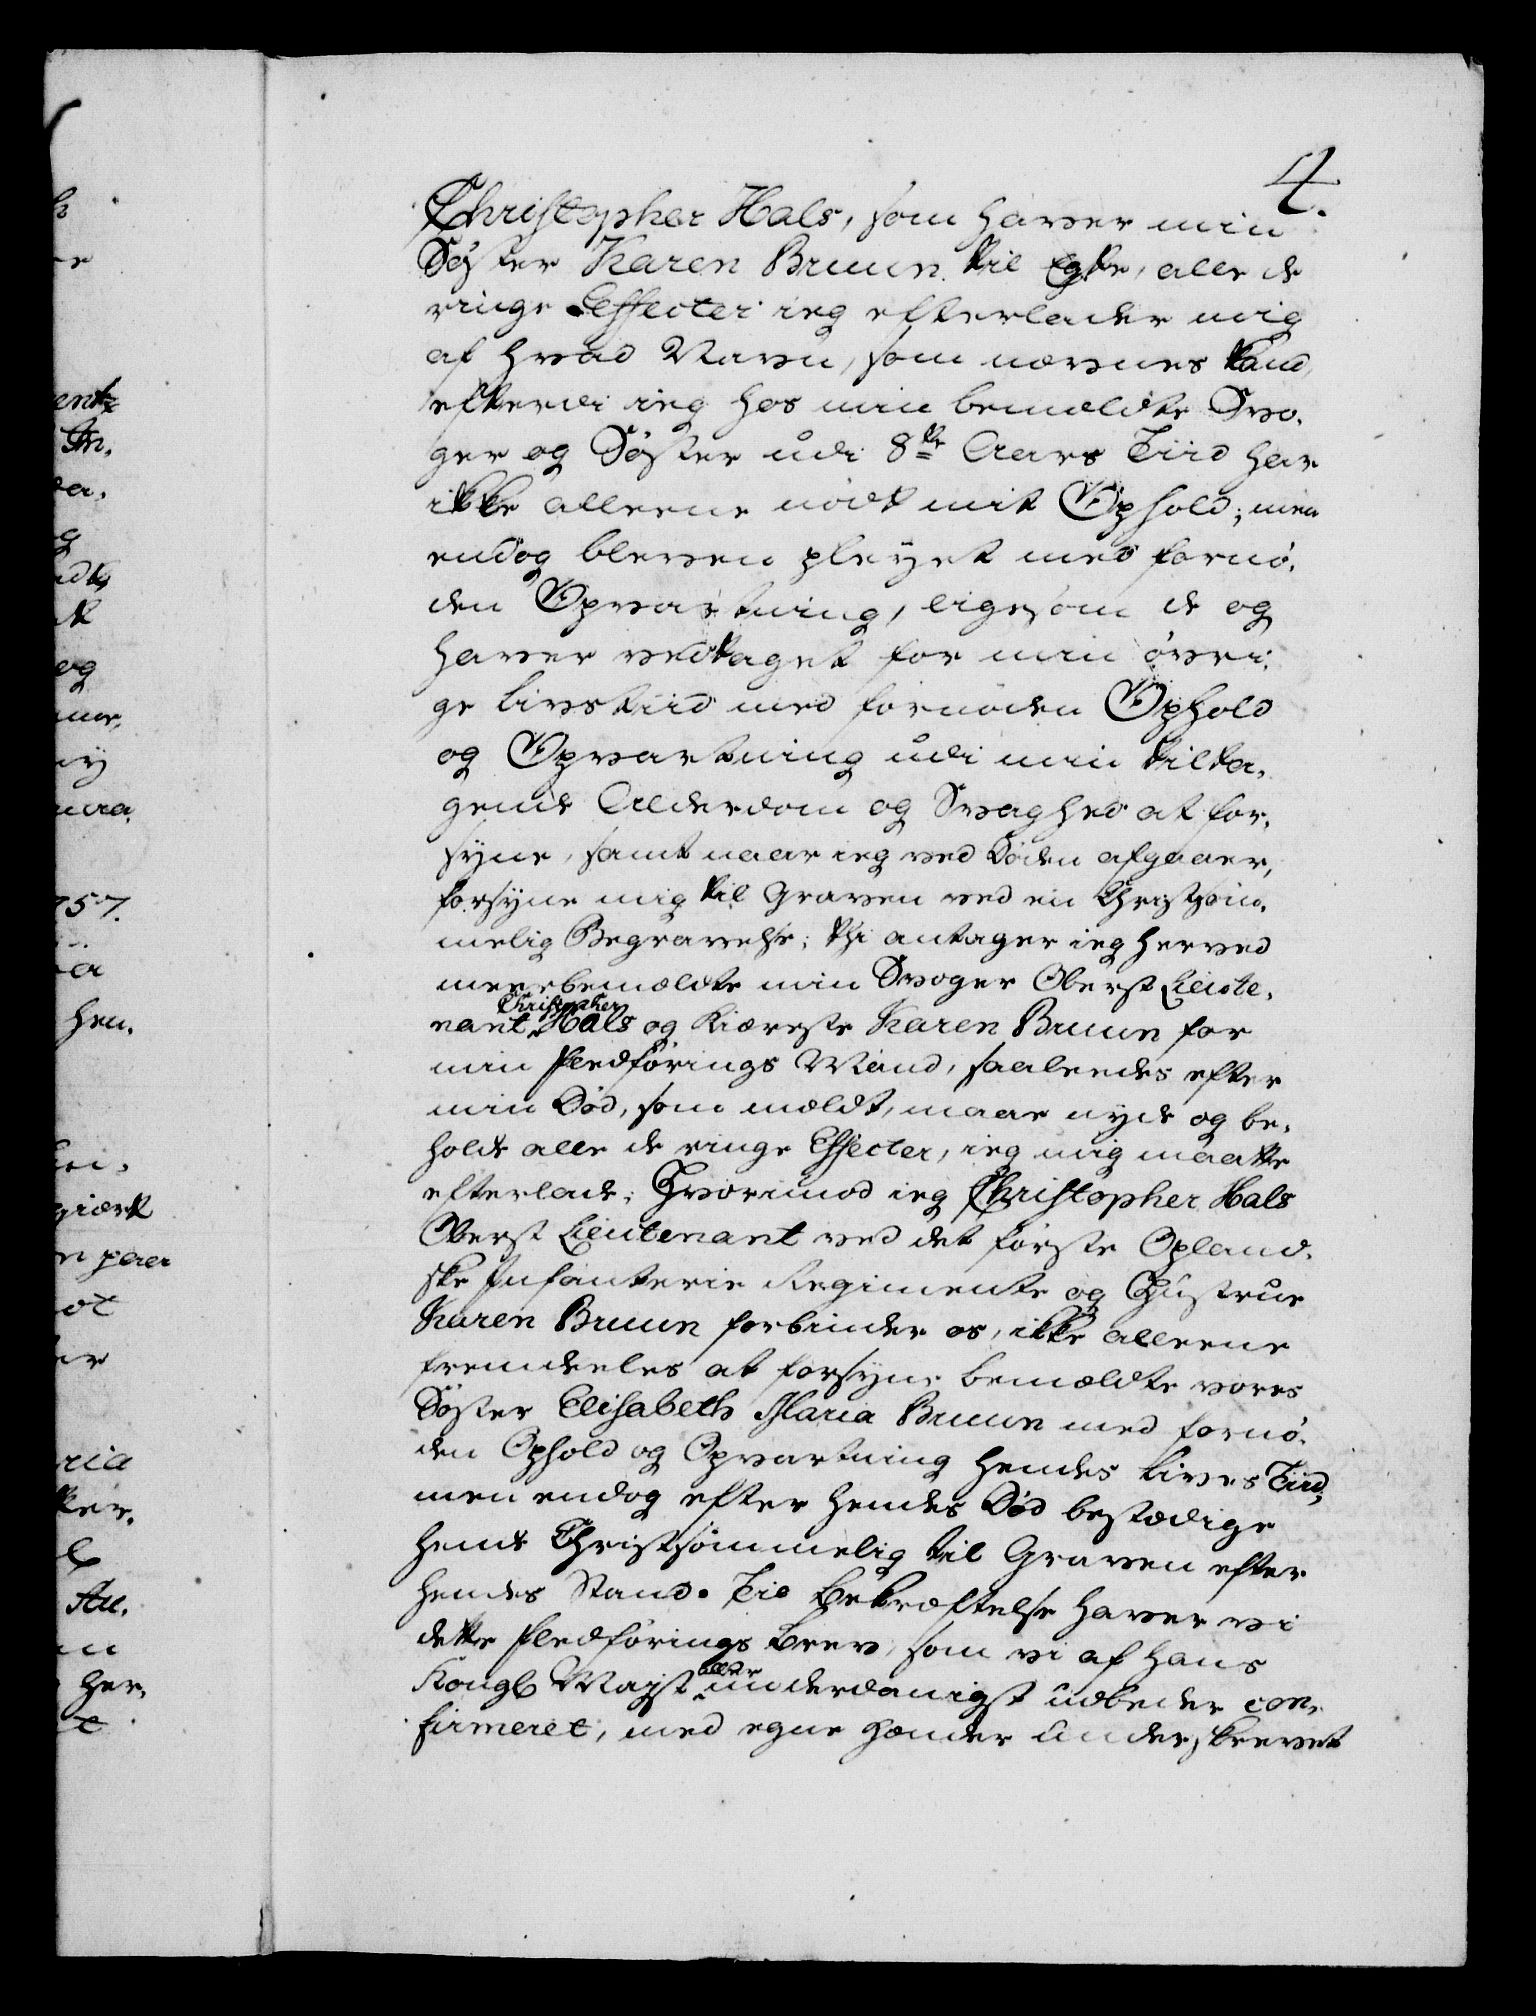 4.
Christopher Hals, som haver min
Søster Karen Bruun til Egte, alle de
ringe Effecter ieg efterlader mig
af hvad Navn, som nævnes kand,
efterdi ieg hos min bemældte Svo-
ger og Søster udi 8te Aars Tiid har
ikke alleene nødt mit Ophold; men
endog bleven pleyet med fornø-
den Opvartning, ligesom de og
haver vedtaget for min øvri-
ge Livstiid med fornøden Ophold
og Opvartning udi min tilta-
gende Alderdom og Svaghed at for-
syne, samt naar ieg ved Døden afgaaer,
forsyne mig til Graven ved en Christsøm-
melig Begravelse; thi antager ieg herved
meerbemældte min Svoger Oberst Lieute-
Christopher
nant Hals og Kiæreste Karen Bruun for
min Fledførings Mænd, saaleedes efter
min Død, som mældt, maae nyde og be-
holde alle de ringe Effecter, ieg mig maatte
efterlade; Hvorimod ieg Christopher Hals
Oberst Lieutenant ved det første Opland-
ske Infanterie Regimente og Hustrue
Karen Bruun forbinder os, ikke alleene
fremdeeles at forsyne bemældte vores
Søster Elisabeth Maria Bruun med fornø-
den Ophold og Opvartning hendes Livs Tiid,
men endog efter hendes Død bestædige
hende Christsømmelig til Graven efter
hendes Stand. Til Bekræftelse haver vi
dette Fledførings Brev, som vi af Hans
aller
Kongl Mayst underdanigst udbeder con-
firmeret, med egne Hænder underskrevet
entz
og
757.
hen.
giort
ria
her,